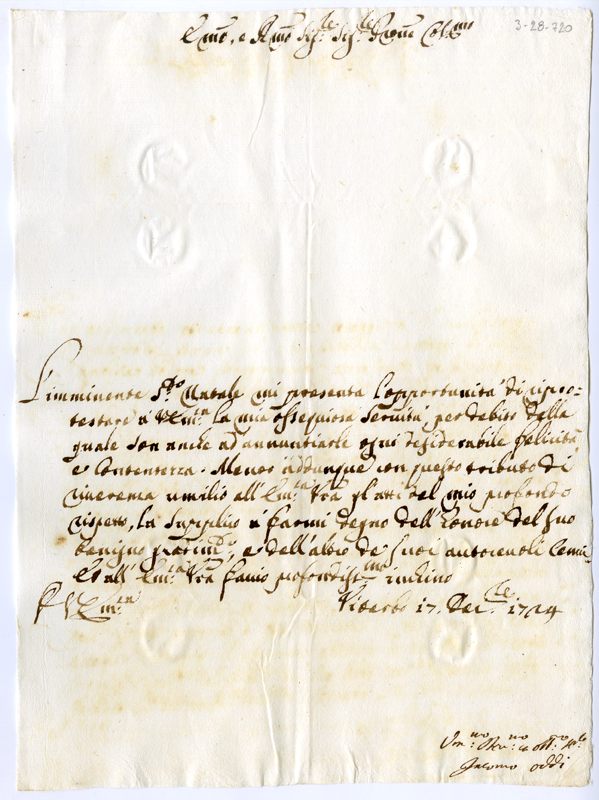 Emo, e Rmo Sig.re Sig.re Prone Colmo
3-28-720
L'imminente S.to Natale mi presenta l'opportunità di ripro=
testare a V. Em.za la mia ossequiosa servitù per debito della
quale son anche ad annuntiarle ogni desiderabile felicità,
e Contentezza. Mentre addunque con questo tributo di
riverenza umilio all'Em.za Vra gl'atti del mio profondo
rispetto, la supplico à farmi degno dell'honore del suo
benigno gradim.to, e dell'altro de suoi autorevoli Cenni
Et all'Em.za Vra faccio profondiss.mo inchino
D V. Em.za Viterbo 17. Dec.bre 1724
Um.mo Dev.mo et Obl.mo
Giacomo Oddi